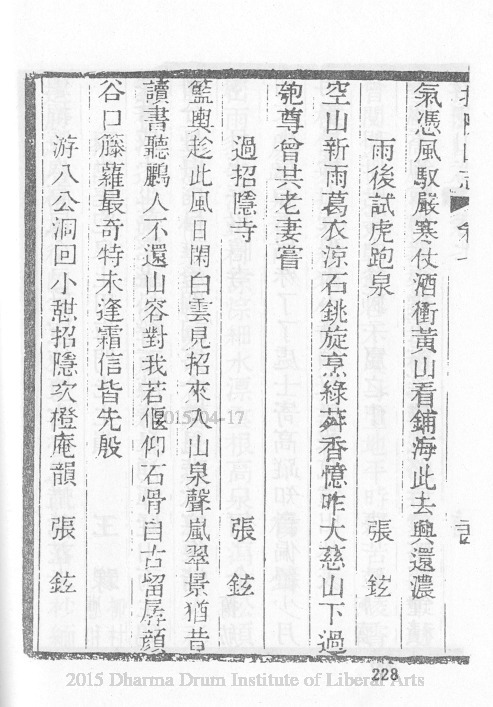 氣憑風馭嚴寒仗酒衝黃山看鋪海此去興還濃
雨後試虎跑泉　張鉉
空山新雨葛衣涼石銚旋烹綠荈香憶昨大慈山下過
匏尊曾共老妻嘗
過招隱寺　張鉉
籃輿趁此風日閑白雲見招來入山泉聲嵐翠景猶昔
讀書聽鸝人不還山容對我若偃仰石骨自古留孱顏
谷口籐蘿最奇特未逢霜信皆先殷
游八公洞回小憩招隱次橙庵韻　張鉉
228
2015-04-17
2015 Dharma Drum Institute of Liberal Arts